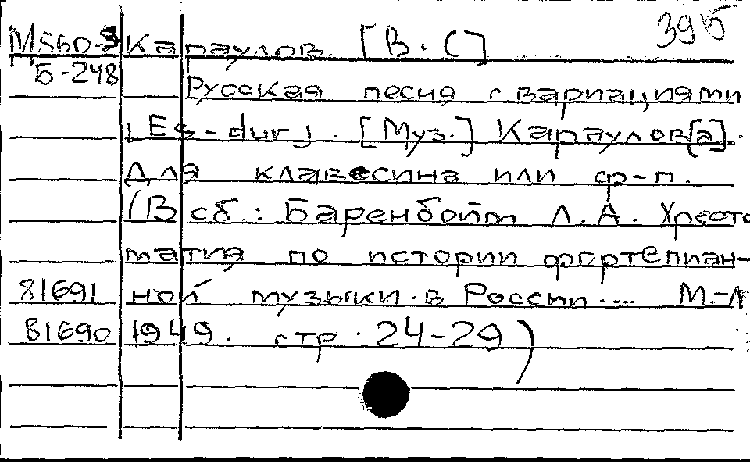 39б
М560-3 Караулов. [В. С]
Б-248
Русская песня с вариациями
(Es-dur). [Муз.] Караулов[а].
Для клавесина или ф-п.
(В сб: Баренбойм Л.А. Хресто
матия по истории фортепиан-
81691 ной музыки в России... М.-Л
81690 1949. стр. 24-29)